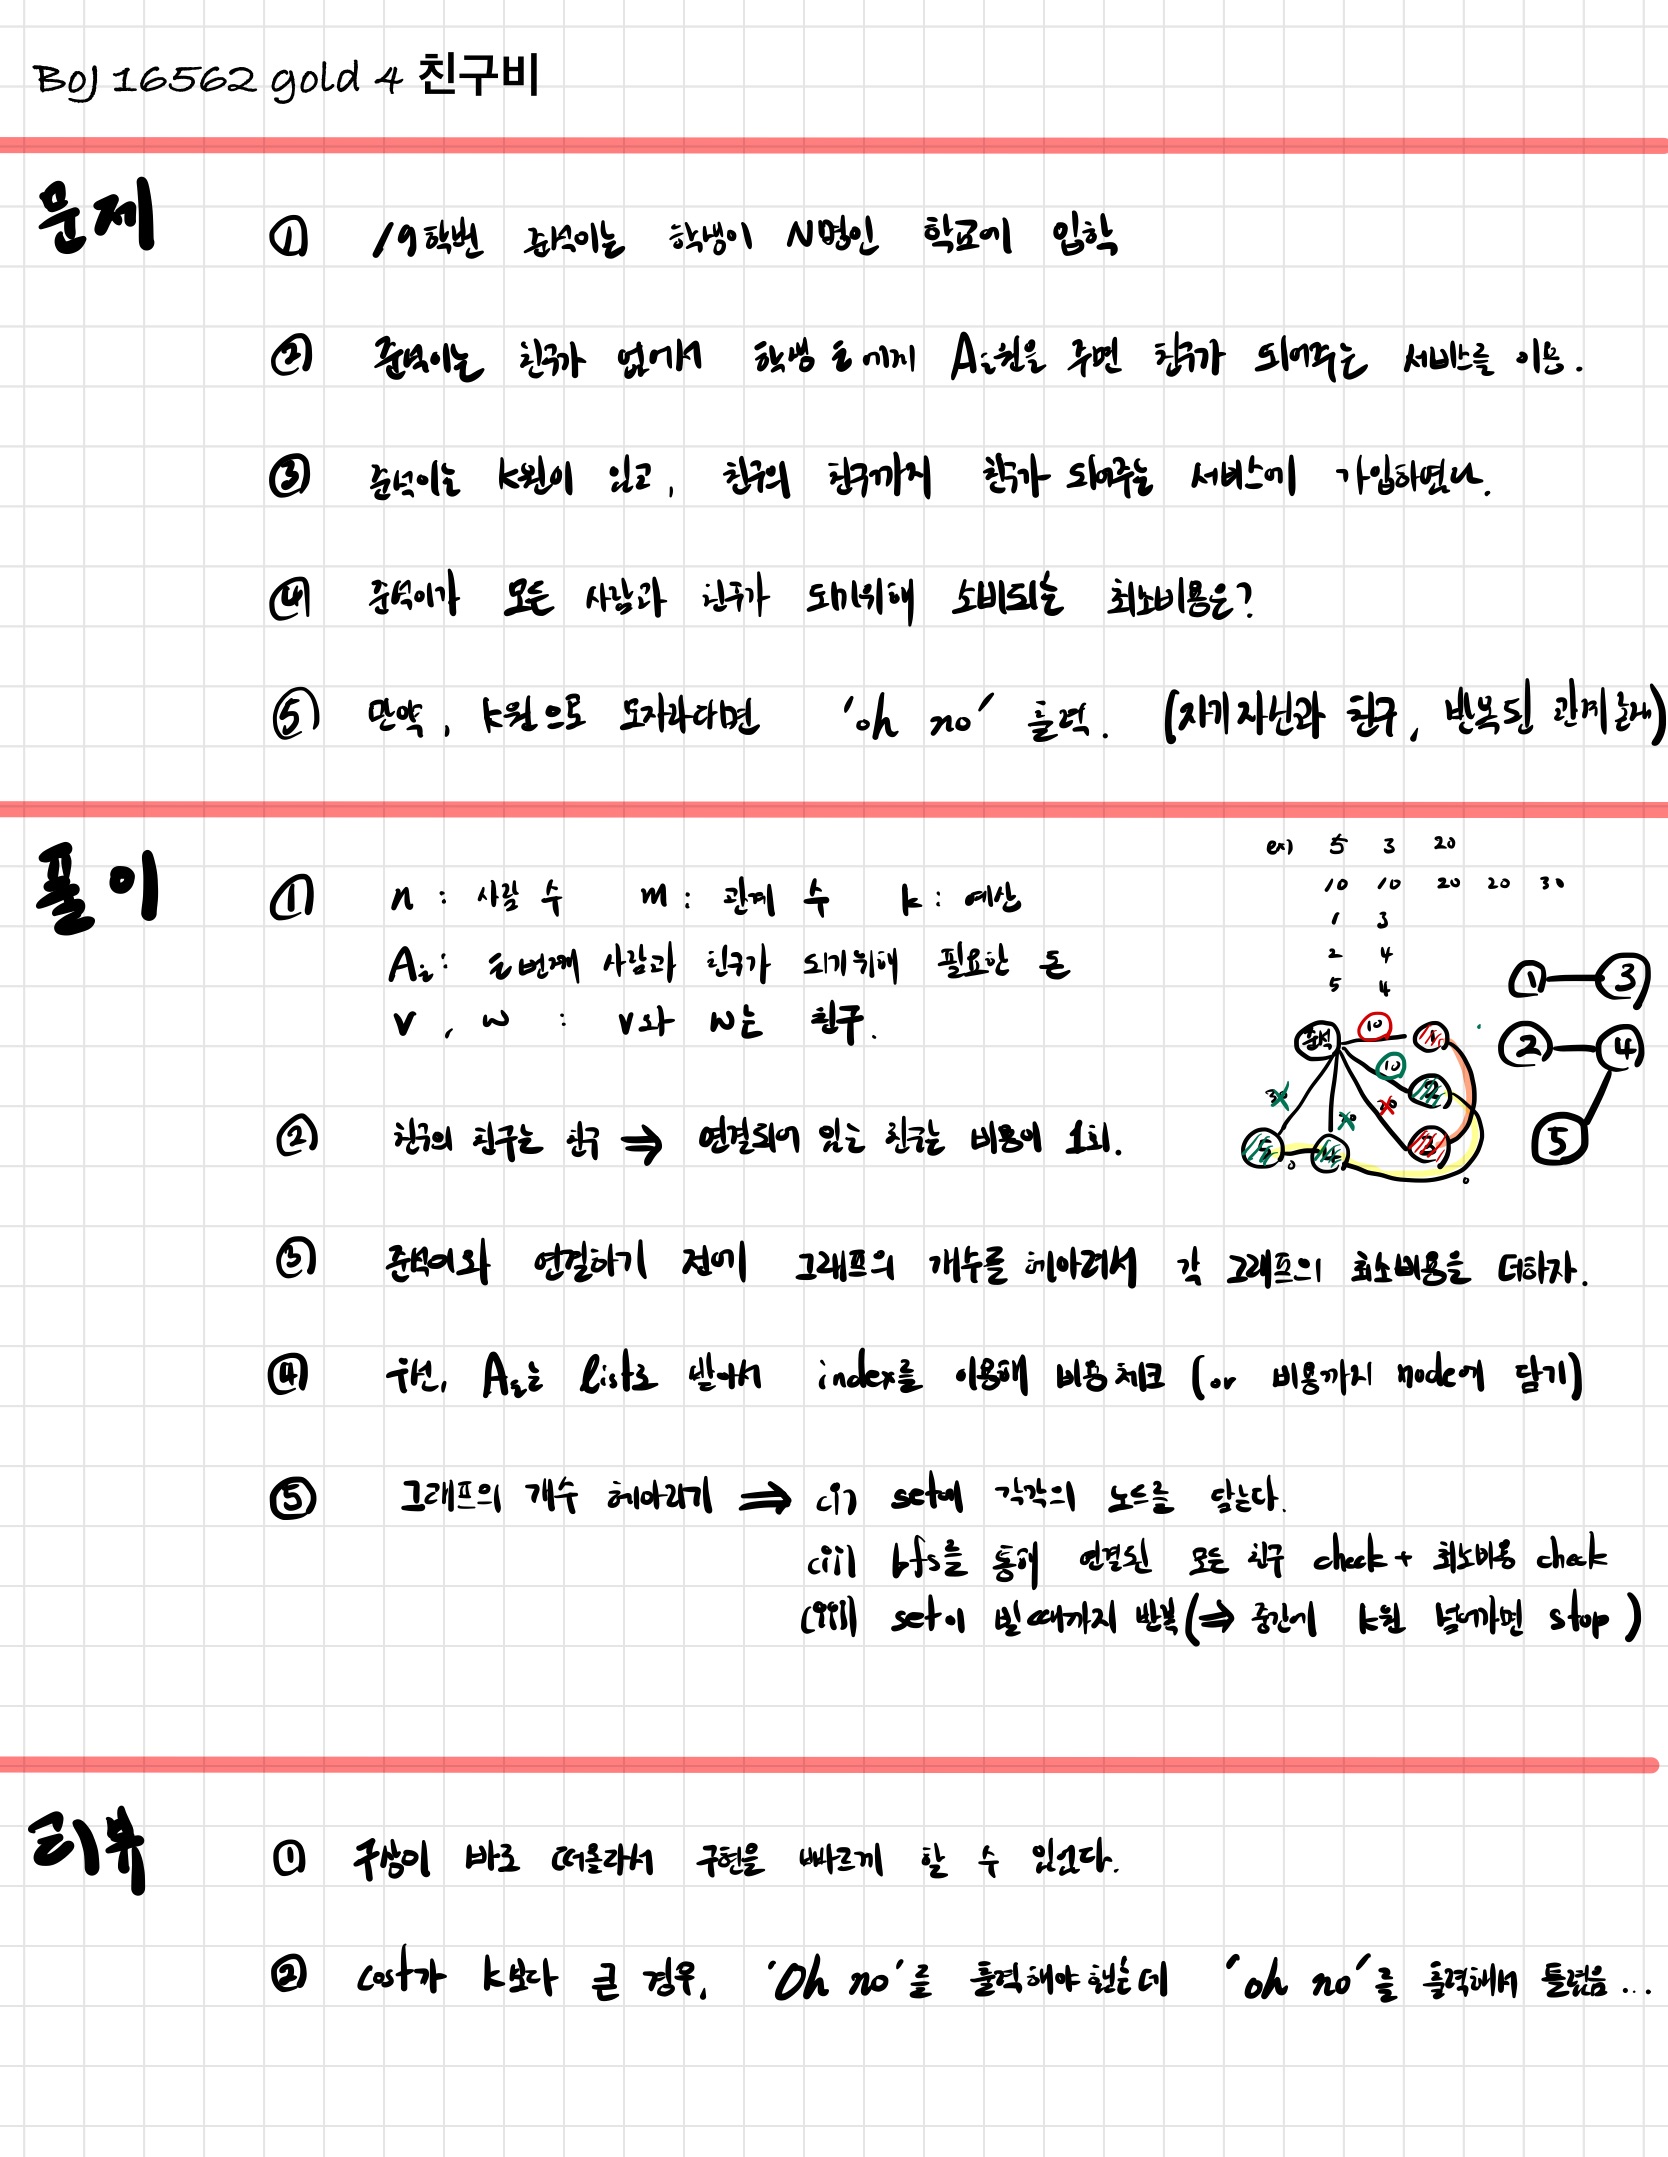 BOJ 16562 gold 4 친구비
문제
① 19학번 준석이는 학생이 N명인 학교에 입학
② 준석이는 친구가 없어서 학생 i에게 Ai원을 주면 친구가 되어주는 서비스를 이용.
③ 준석이는 k원이 있고, 친구의 친구까지 친구가 되어주는 서비스에 가입하면다.
④ 준석이가 모든 사람과 친구가 되기위해 소비되는 최소비용은?
⑤ 만약, k원으로 모자라다면 'oh no' 출력. (자기자신과 친구, 반복된 관계 존재)
풀이
① n : 사람 수 m : 관계 수 k : 예산
Ai : i번째 사람과 친구가 되기위해 필요한 돈
v, w : v와 w는 친구.
② 친구의 친구는 친구 ⇒ 연결되어 있는 친구는 비용이 1회.
③ 준석이와 연결하기 전에 그래프의 개수를 헤아려서 각 그래프의 최소비용을 더하자.
④ 우선, Ai는 list로 받아서 index를 이용해 비용 체크 (or 비용까지 node에 담기)
⑤ 그래프의 개수 헤아리기 ⇒ (i) set에 각각의 노드를 담는다.
(ii) bfs를 통해 연결된 모든 친구 check + 최소비용 check
(iii) set이 빌 때까지 반복 (⇒ 중간에 k원 넘어가면 stop)
ex) 5 3 20
10 10 20 20 30
1 3
2 4
5 4
준석 10 1
10 2
30 20 20 3
5 0 4 0
1 3
2 4
5
리뷰
① 구상이 바로 떠올라서 구현을 빠르게 할 수 있었다.
② cost가 k보다 큰 경우, 'Oh no'를 출력해야 했는데 'oh no'를 출력해서 틀렸음...